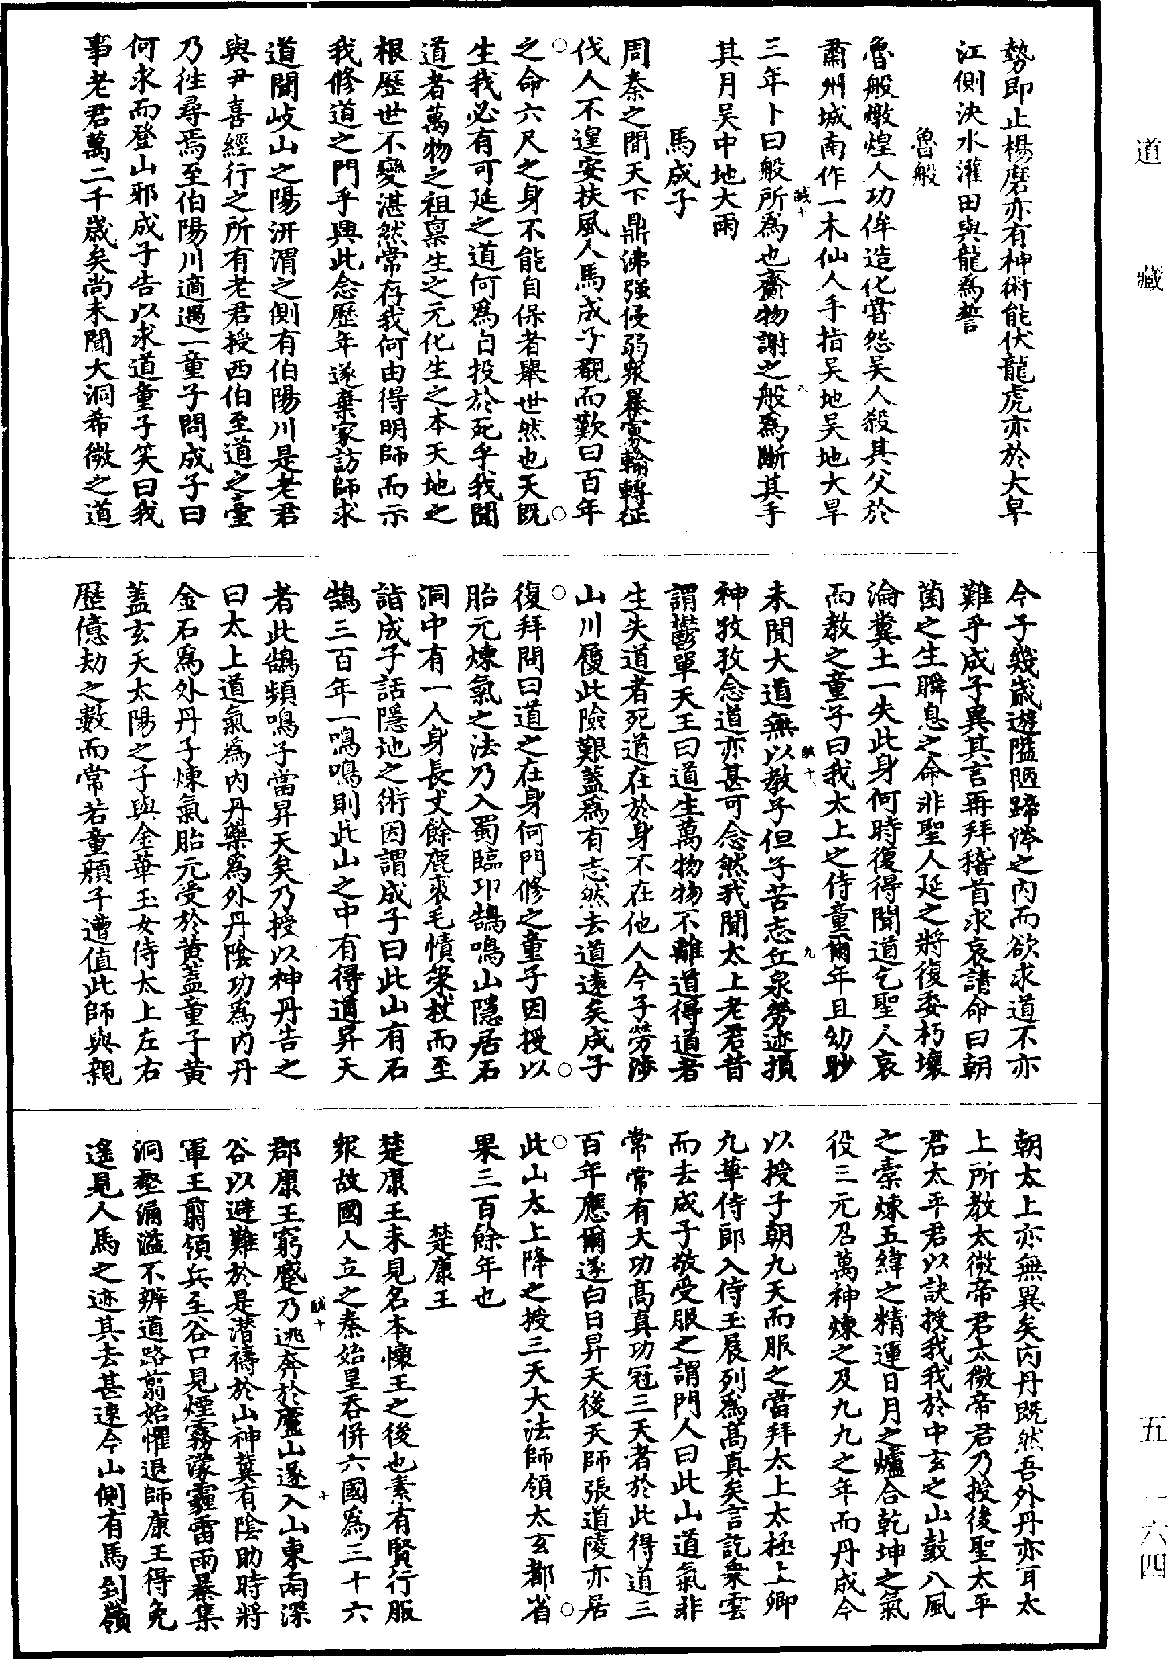 道藏
五一六四
勢即止楊磨亦有神術能伏龍虎亦於大旱
江側決水灌田與龍為誓
魯般
魯般燉煌人功侔造化嘗怨吳人殺其父於
肅州城南作一木仙人手指吳地吳地大旱
三年卜曰般所為也齎物謝之般為斷其手
其月吳中地大雨
馬成子
周秦之間天下鼎沸強侵弱眾暴寡輪轉征
伐人不遑安扶風人馬成子覩而歎曰百年
之命六尺之身不能自保者舉世然也天既
生我必有可延之道何為白投於死乎我聞
道者萬物之祖稟生之元化生之本天地之
根歷世不變湛然常存我何由得明師而示
我修道之門乎興此念歷年遂棄家訪師求
道聞岐山之陽汧渭之側有伯陽川是老君
與尹喜經行之所有老君授西伯至道之臺
乃往尋焉至伯陽川適遇二童子問成子曰
何求而登山邪成子告以求道童子笑曰我
事老君萬二千歲矣尚未聞大洞希微之道
今子幾歲遊隘陋蹄涔之內而欲求道不亦
難乎成子異其言再拜稽首求哀請命曰朝
菌之生瞬息之命非聖人延之將復委朽壤
淪糞土一失此身何時復得聞道乞聖人哀
而教之童子曰我太上之侍童爾年且幼眇
未聞大道無以教子但子苦志丘泉勞迹損
神孜孜念道亦甚可念然我聞太上老君昔
謂鬱單天王曰道生萬物物不離道得道者
生失道者死道在於身不在他人今子勞涉
山川履此險艱蓋為有志然去道遠矣成子
復拜問曰道之在身何門修之童子因授以
胎元煉氣之法乃入蜀臨邛鵠鳴山隱居石
洞中有一人身長丈餘鹿裘毛幘策杖而至
詣成子話隱地之術因謂成子曰此山有石
鵠三百年一鳴鳴則此山之中有得道昇天
者此鵠頻鳴子當昇天矣乃授以神丹告之
曰太上道氣為內丹藥為外丹陰功為內丹
金石為外丹子煉氣胎元受於黃蓋童子黃
蓋玄天太陽之子與金華玉女侍太上左右
歷億劫之數而常若童顏子遭值此師與親
朝太上亦無異矣內丹既然吾外丹亦耳太
上所教太微帝君太微帝君乃授後聖太平
君太平君以訣授我我於中玄之山鼓八風
之橐煉五緯之精運日月之爐合乾坤之氣
役三元召萬神煉之及九九之年而丹成今
以授子朝九天而服之當拜太上太極上卿
九華侍郎入侍玉扆列為高真矣言訖乘雲
而去成子敬受服之謂門人曰此山道氣非
常常有大功高真功冠三天者於此得道三
百年應爾遂白日昇天後天師張道陵亦居
此山太上降之授三天大法師領太玄都省
果三百餘年也
楚康王
楚康王未見名本懷王之後也素有賢行服
眾故國人立之秦始皇吞併六國為三十六
郡康王窮蹙乃逃奔於廬山遂入山東南深
谷以避難於是潛禱於山神冀有陰助時將
軍王翦領兵至谷口見煙霧濛霾雷雨暴集
洞壑涌溢不辨道路翦始懼退師康王得免
遙見人馬之迹其去甚速今山側有馬到嶺